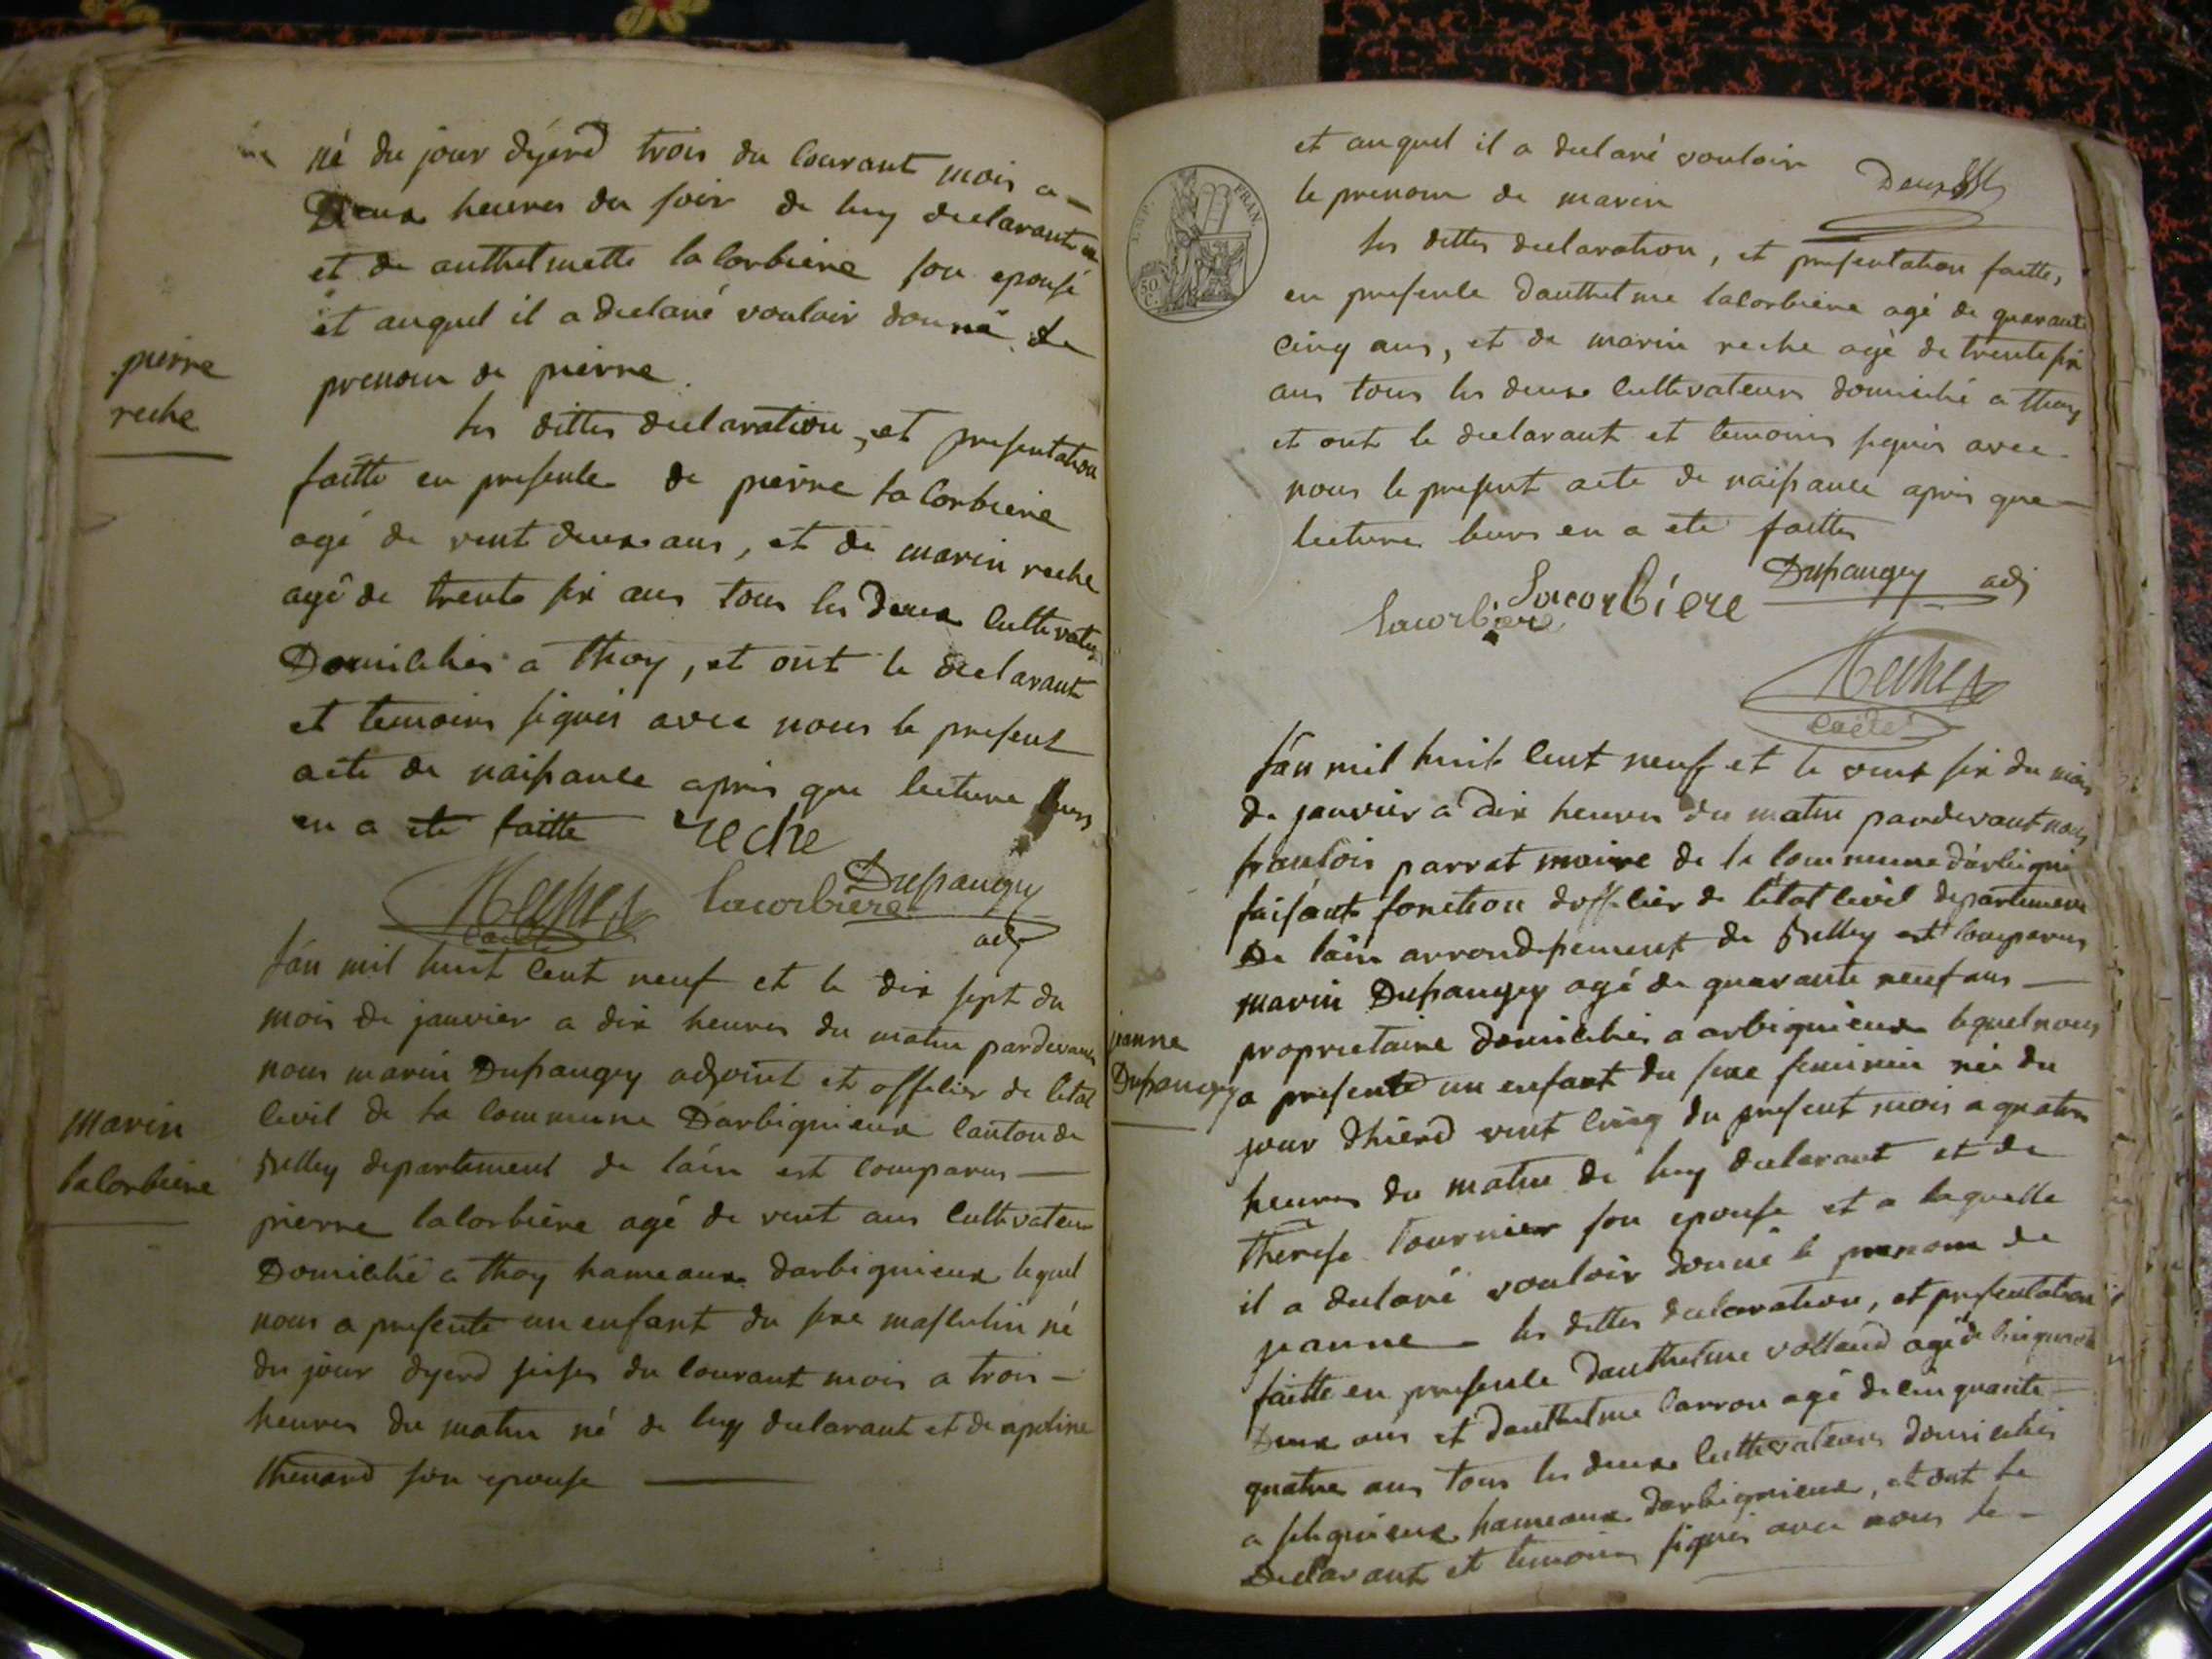 né du jour dyerd trois du Courant mois a
Deux heures du soir de luy declarant
et de anthelmette laCorbiere son epousé
et auquel il a declaré vouloir donné le
prenom de pierre.
pierre
reche
les dittes declaration, et presentation
faitte en presence de pierre laCorbiere
agé de vent deux ans, et de marin reche
agé de trente six ans tous les deux Cultivateurs
Domicilies a thoy, et ont le declarant
et temoins signés avec nous le present
acte de naissance apres que lecture leurs
en a ete faitte
reche
laCorbiere
Dupaugey
adj
lán mil huit Cent neuf et le dix sept du
mois de janvier a dix heures du matin pardevant
nous marin Dupaugey adjoint et officier de letat
Civil de la Commune Darbignieux Canton de
Belley departement de láin est Comparus
marin
laCorbiere
pierre laCorbiere agé de vent ans Cultivateur
Domicilié a thoy hameaux darbignieux lequel
nous a presente un enfant du sexe masculin né
du jour dyerd seises du Courant mois a trois
heures du matin né de luy declarant et de apoline
thenard son epouse
FRAN.
50
C.
et auquel il a declaré vouloir
le prenom de marin
les dittes declaration, et presentation faitte,
en presence danthelme laCorbiere agé de quarante
Cinq ans, et de marin reche agé de trente six
ans tous les deux Cultivateurs domicilié a thoy
et ont le declarant et temoins signés avec
nous le present acte de naissance apres que
lecture leurs en a ete faitte
Lacorbiere
Lacorbiere
Dupaugey adj
lán mil huit Cent neuf et le vent six du mois
de janvier a dix heures du matin pardevant nous
francois parrat maire de la Commune darbigni
faisant fonction dofficier de létat Civil departement
De láin arrondissement de Belley est Comparus
marin Dupaugey agé de quarante neuf ans
jeanne
Dupaugey
proprietaire domicilies a arbignieux lequel nous
a presenté un enfant du sexe feminin née du
jour dhierd vent Cinq du present mois a quatre
heures du matin de luy declarant et de
therese tournier son epouse et a laquelle
il a declaré vouloir donné le prenom de
jeanne les dittes declaration, et presentation
faitte en presence danthelme volland agé de Cinquante
Deux ans et danthelme Carrou agé de Cinquante
quatre ans tous les deux Cultivateurs domicilies
a hameaux darbignieux, et ont le
Declarant et temoins signés avec nous le